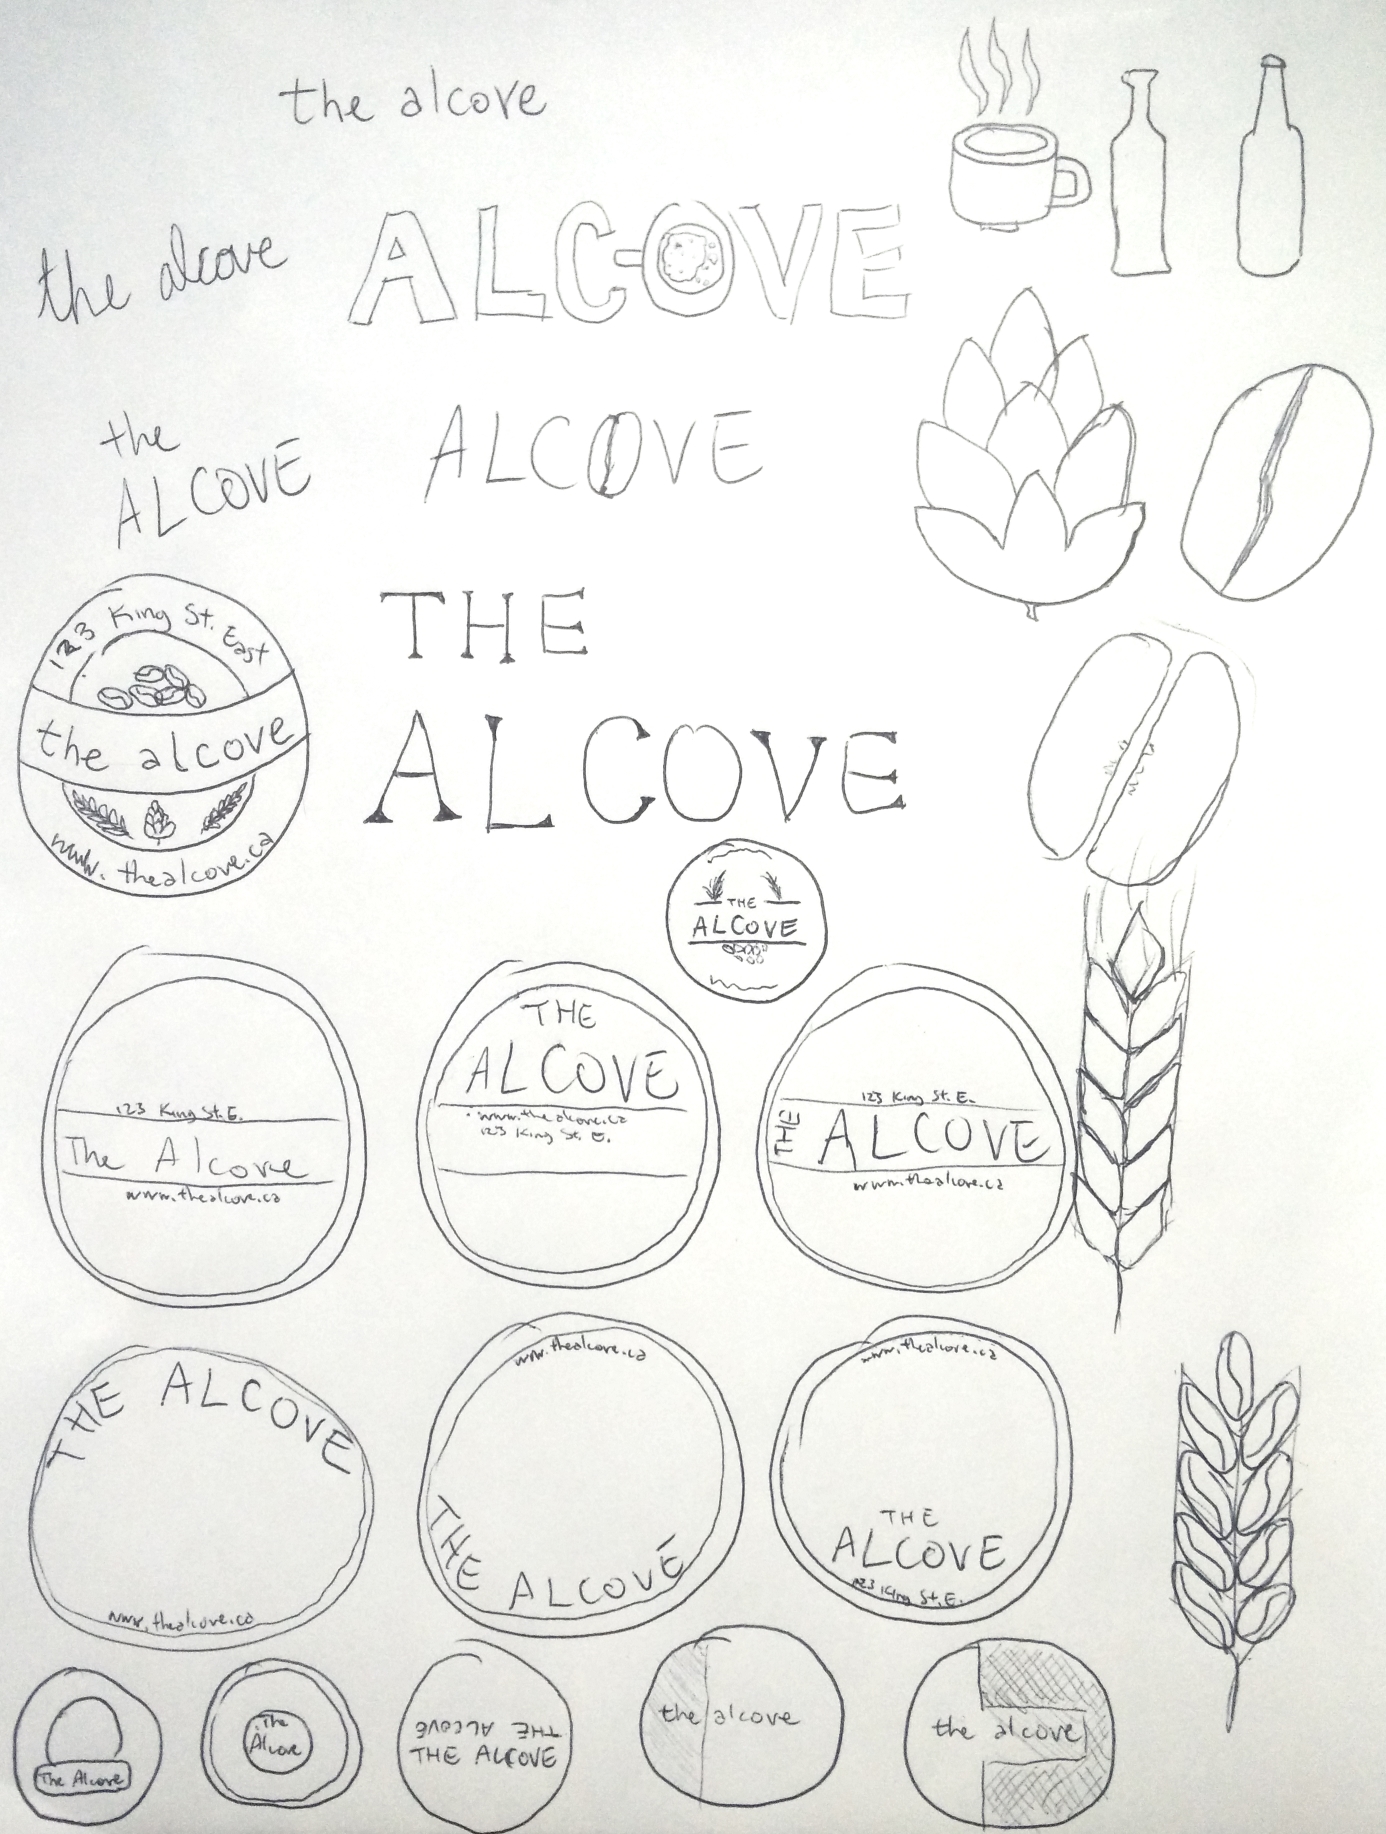 the alcove
the alcove
ALCOVE
the
ALCOVE
ALCOVE
123 King St. East
the alcove
www.thealcove.ca
THE
ALCOVE
THE
ALCOVE
123 King St. E.
The Alcove
www.thealcove.ca
THE
ALCOVE
www.thealcove.ca
123 King St. E.
123 King St. E.
THE ALCOVE
www.thealcove.ca
THE ALCOVE
www.thealcove.ca
www.thealcove.ca
THE ALCOVE
www.thealcove.ca
THE
ALCOVE
123 King St. E.
The Alcove
The
Alcove
THE ALCOVE
THE ALCOVE
the alcove
the alcove